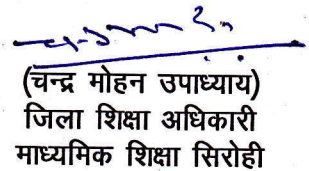 (चन्द्र मोहन उपाध्याय)
जिला शिक्षा अधिकारी
माध्यमिक शिक्षा सिरोही